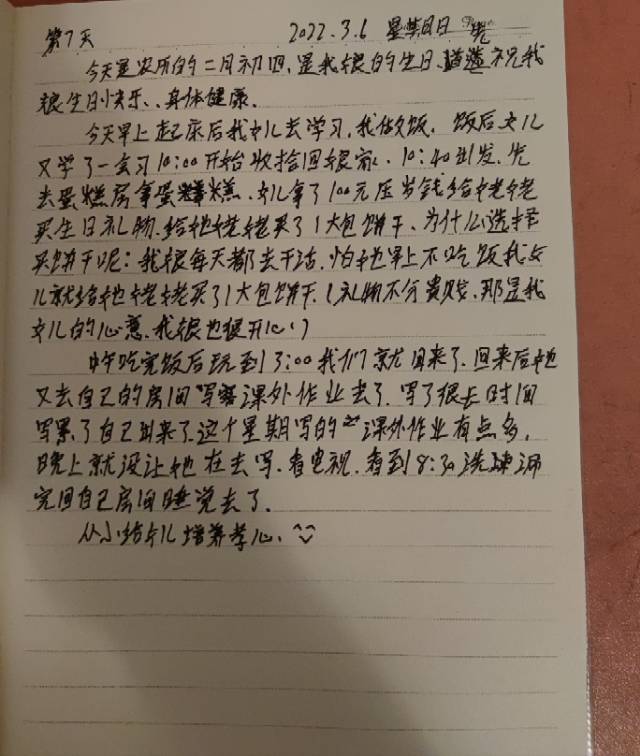 第7天 2022.3.6 星期日
今天是农历的二月初四,是我娘的生日.祝我
娘生日快乐、身体健康.
今天早上起床后我女儿去学习,我做饭.饭后女儿
又学了一会习10:00开始收拾回娘家.10:40出发.先
去蛋糕房拿蛋糕.女儿拿了100元压岁钱给她姥姥
买生日礼物.给她姥姥买了1大包饼干.为什么选择
买饼干呢:我娘每天都去干活.怕她早上不吃饭我女
儿就给她姥姥买了1大包饼干.(礼物不分贵贱.那是我
女儿的心意.我娘也很开心!)
中午吃完饭后玩到13:00我们就回来了.回来后她
又去自己的房间写课外作业去了.写了很长时间
写累了自己出来了.这个星期写的课外作业有点多,
晚上就没让她在去写.看电视.看到8:30洗漱
完回自己房间睡觉去了.
从小给女儿培养孝心.